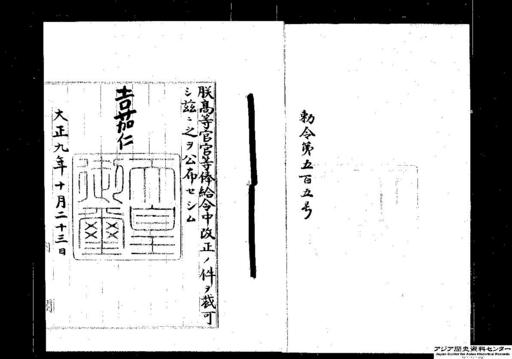 勅令第五百五号
朕高等官官等俸給令中改正ノ件ヲ裁可
シ茲ニ之ヲ公布セシム
嘉仁
天皇御璽
大正九年十月二十三日
アジア歴史資料センター
Japan Center for Asian Historical Records